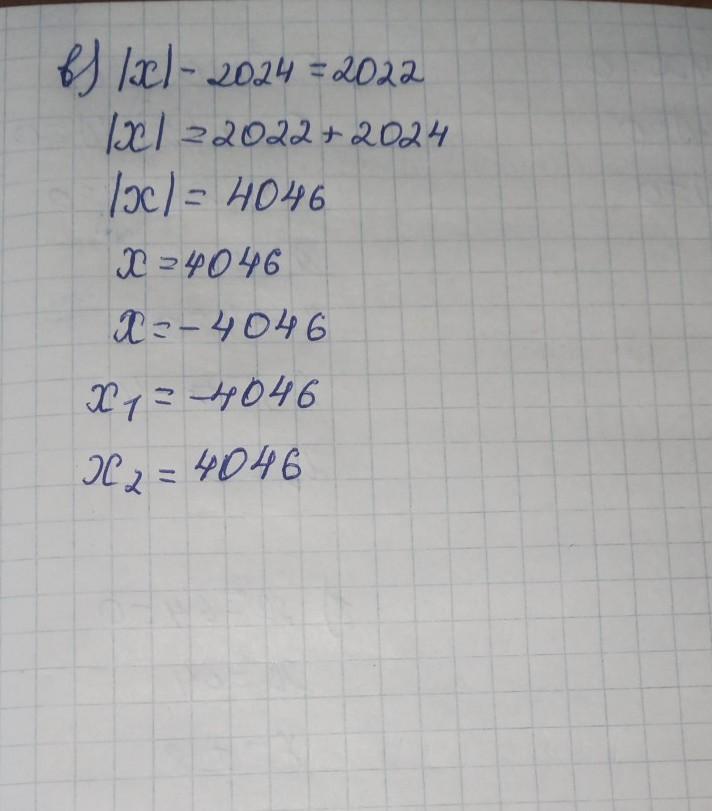 в) |x| - 2024 = 2022
|x| = 2022 + 2024
|x| = 4046
x = 4046
x = - 4046
x₁ = -4046
x₂ = 4046